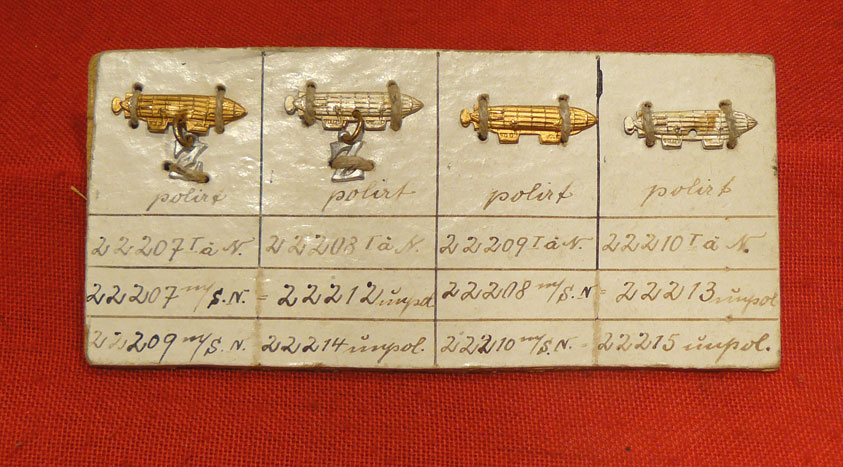 polirt polirt polirt polirt
22207 T à N. 22208 T à N. 22209 T à N. 22210 T à N.
22207 m/S.N. = 22212 unpol 22208 m/S.N = 22213 unpol
22209 m/S.N. 22214 unpol. 22210 m/S.N. 22215 unpol.